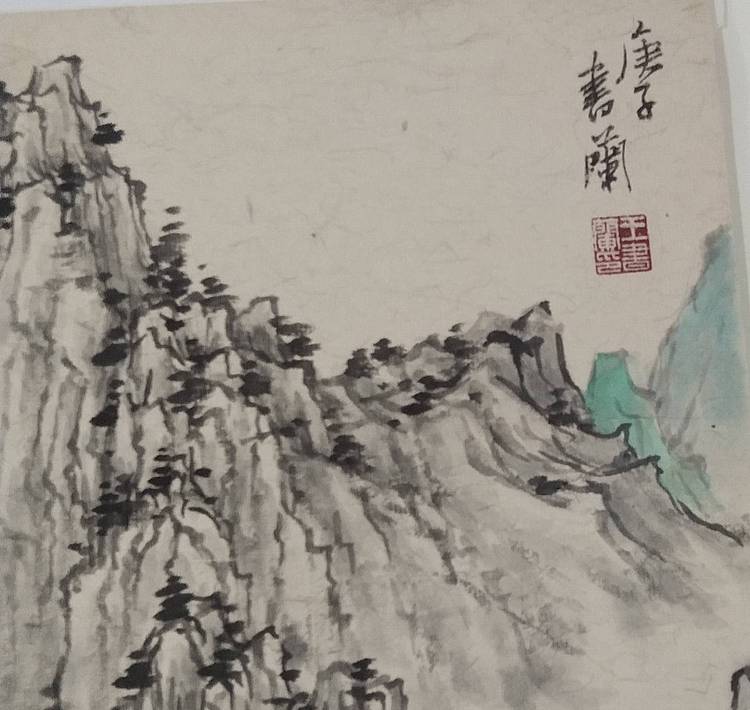 庚子
書蘭
王書蘭印